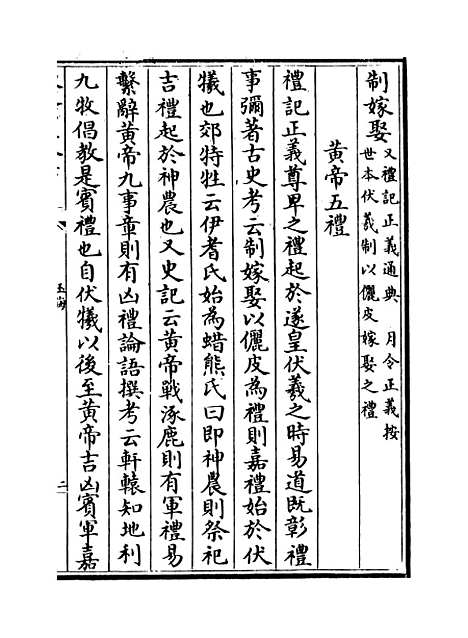 制嫁娶又禮記正義通典　月令正義按
世本伏羲制以儷皮嫁娶之禮
黄帝五禮
禮記正義尊卑之禮起於遂皇伏羲之時易道既彰禮
事彌著古史考云制嫁娶以儷皮為禮則嘉禮始於伏
犧也郊特牲云伊耆氏始為蜡熊氏曰即神農則祭祀
吉禮起於神農也又史記云黄帝戰涿鹿則有軍禮易
繫辭黄帝九事章則有凶禮論語撰考云軒轅知地利
九牧倡教是賓禮也自伏犧以後至黄帝吉凶賓軍嘉
玉海
二